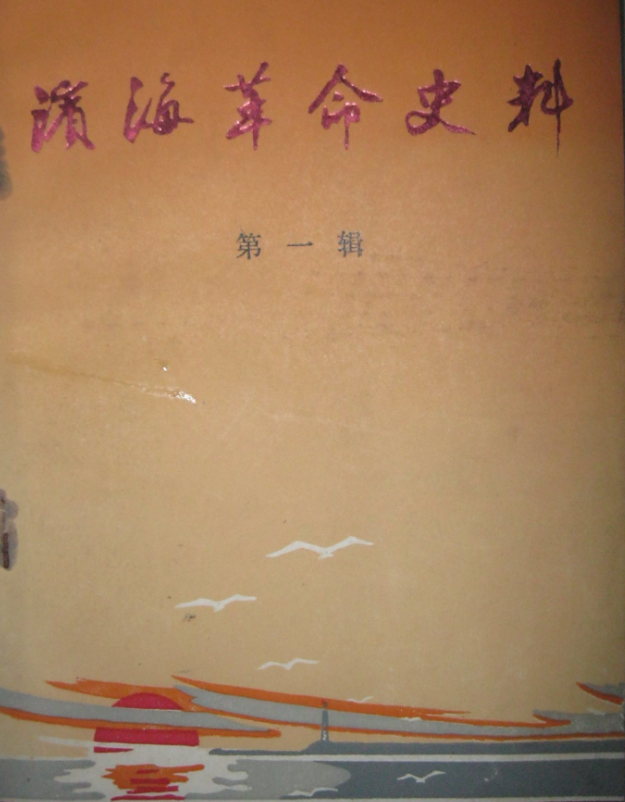 滨海革命史料
第一辑